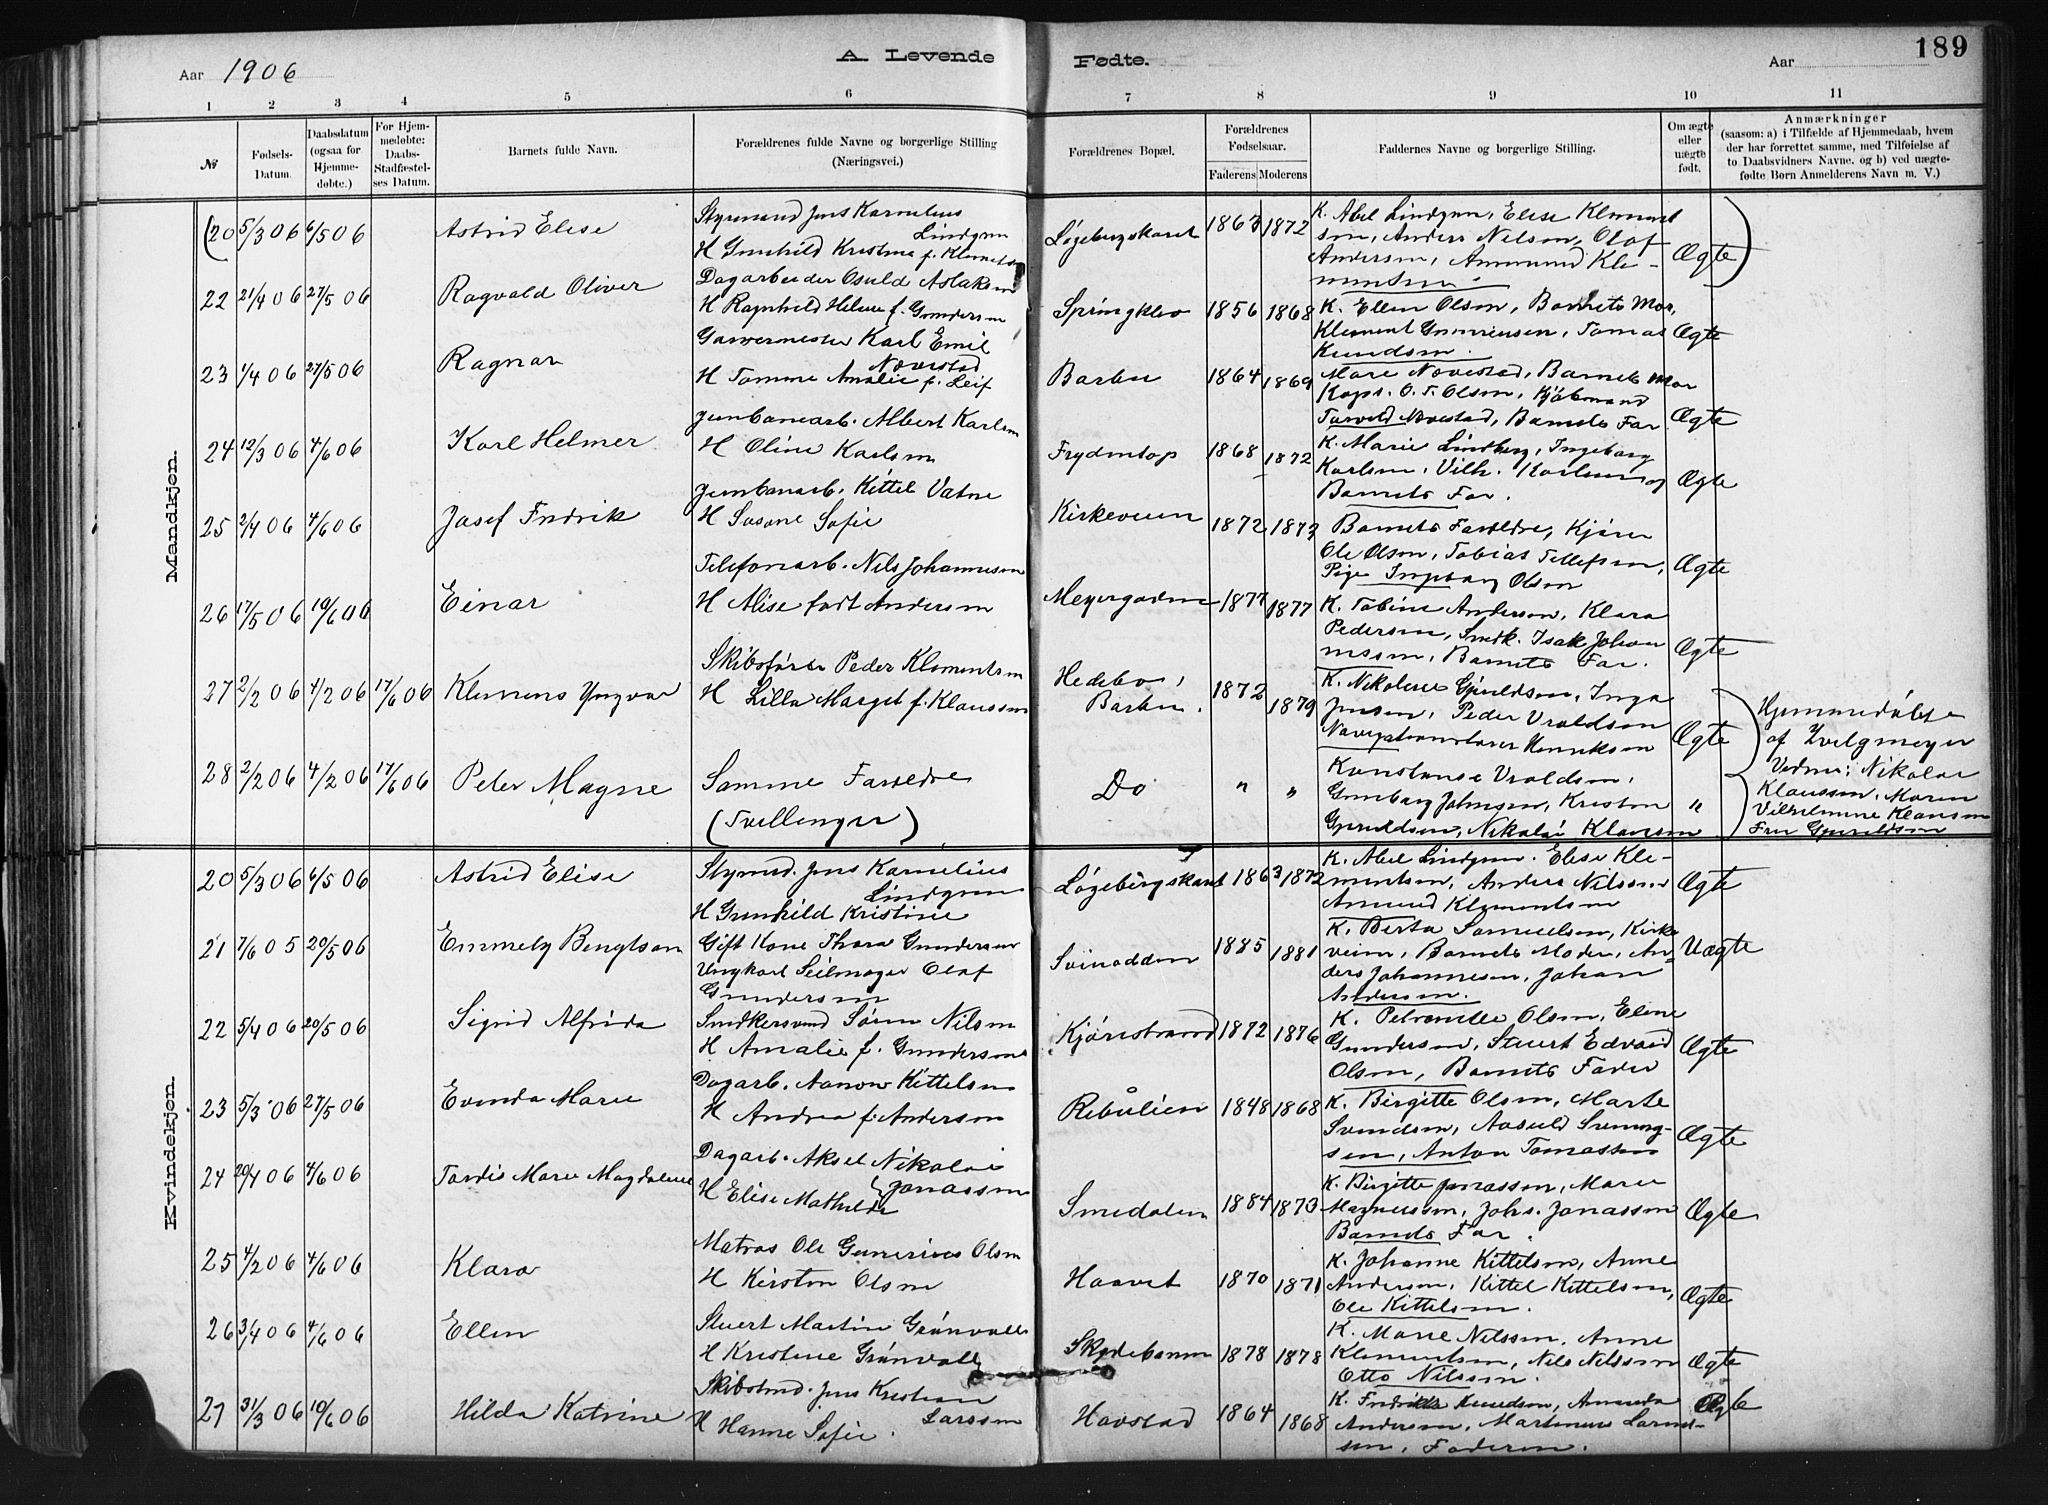 189
A. Levende Fødte.
Aar 1906
Aar
1 2 3 4 5 6 7 8 9 10 11
№
Fødsels-
Datum.
Daabsdatum
(ogsaa for
Hjemme-
døbte.)
For Hjem-
medøbte:
Daabs-
Stadfæstel-
ses Datum.
Barnets fulde Navn.
Forældrenes fulde Navne og borgerlige Stilling
(Næringsvei.)
Forældrenes Bopæl.
Forældrenes
Fødselsaar.
Faderens Moderens
Faddernes Navne og borgerlige Stilling.
Om ægte
eller
uægte
født.
Anmærkninger
(saasom: a) i Tilfælde af Hjemmedaab, hvem
der har forrettet samme, med Tilføielse af
to Daabsvidners Navne. og b) ved uægte-
fødte Børn Anmelderens Navn m. V.)
Mandkjøn.
(20 5/3 06 6/5 06 Astrid Elise
Styrmand Jens Kornelius
Lindgren
H Gunhild Kristine f. Klemetsen
Løgebergskaret 1863 1872
K. Abel Lindgren, Elise Klement
sen, Anders Nilsen, Olaf
Andersen, Ammund Kle-
mentsen.
Ægte)
22 21/4 06 27/5 06 Ragvald Oliver
Dagarbeider Osuld Aslaksen
H Ragnhild Helene f. Gundersen
Springklev 1856 1868
K. Ellen Olsen, Barnets Mor,
Klement Gunnriusen, Tomas
Knudsen.
Ægte
23 1/4 06 27/5 06 Ragnar
Garvermester Karl Emil
Novestad
H Tomme Amalie f. Leif
Barbu 1864 1869
Mare Novestad, Barnets Mor
Kaps. O. T. Olsen, Kjøbmand
Torvald Novestad, Barnets Far
Ægte
24 12/3 06 4/6 06 Karl Helmer
Jernbanearb. Albert Karlsen
H Oline Karlsen
Frydentop 1868 1872
K. Marie Lindberg, Ingeborg
Karlsen, Vilh. Karlsen og
Barnets Far.
Ægte
25 2/4 06 4/6 06 Josef Fredrik
Jernbanarb. Kittel Vatne
H Susane Sofie
Kirkeveien 1872 1873
Barnets Forældre, Kjører
Ole Olsen, Tobias Tellefsen,
Pige Ingeborg Olsen
Ægte
26 17/5 06 10/6 06 Einar
Telefonarb. Nils Johannesen
H Alise født Andersen
Meyergaden 1877 1877
K. Tobine Andersen, Klara
Pedersen, Smdk. Isak Johan
nessen, Barnets Far.
Ægte
27 2/2 06 4/2 06 17/6 06 Klemens Yngvar
Skibsfører Peder Klementsen
H Lilla Marget f. Klaussen
Hedebo,
Barbu. 1872 1879
K. Nikoline Gjeruldsen, Inga
Jensen, Peder Vraldsen
Navigationslærer Henriksen
Ægte
Hjemmedøbt
af Zvilgmeyer
Vidner: Nikolai
Klaussen, Maren
Vilhelmine Klausen
Fru Gjeruldsen
28 2/2 06 4/2 06 17/6 06 Peter Magne
Samme Forældre
(Tvillinger)
Do " "
Konstanse Vraldsen,
Gunborg Johnsen, Kristen
Gjeruldsen, Nikolai Klausen
"
Kvindekjøn.
20 5/3 06 6/5 06 Astrid Elise
Styrmd. Jens Kornelius
Lindgren
H Gunhild Kristine
Løgebergskaret 1863 1872
K. Abel Lindgren. Elise Kle-
mentsen, Anders Nilssen
Amund Klementsen
Ægte
21 7/6 05 20/5 06 Emmely Bengtson
Gift Kone Thora Gundersen
Ungkarl Seilmager Olaf
Gundersen
Svinodden 1885 1881
K. Berta Samuelsen, Kirke
veien, Barnets Moder, An-
ders Johannesen, Johan
Andersen.
Uægte
22 5/4 06 20/5 06 Sigrid Alfrida
Smdkersvend Søren Nilsen
H Amalie f. Gundersen
Kjørrestrand 1872 1876
K. Petronille Olsen, Eline
Gundersen, Stuert Edvard
Olsen, Barnets Fader
Ægte
23 5/3 06 27/5 06 Evinda Marie
Dagarb. Aanon Kittelsen
H Andrea f. Andersen
Rebulien 1848 1868
K. Birgitte Olsen, Marte
Svendsen, Aasuld Svenning-
sen, Anton Tomassen
Ægte
24 20/4 06 4/6 06 Tordis Marie Magdalene
Dagarb. Aksel Nikolai
Jonassen
H Elise Mathilde
Smedalen 1884 1873
K. Birgitte Jonassen, Marie
Magnussen, Johs. Jonassen
Barnets Far.
Ægte
25 4/2 06 4/6 06 Klara
Matros Ole Gunerius Olsen
H Kirsten Olsen
Haavet 1870 1871
K. Johanne Kittelsen, Anne
Andersen, Kittel Kittelsen,
Ole Kittelsen.
Ægte
26 3/4 06 4/6 06 Ellen
Stuert Martin Grønvold
H Kristine Grønvold
Skydebanen 1878 1878
K. Marie Nilssen. Anne
Klementsen, Nils Nilssen
Otto Nilssen.
Ægte
27 31/3 06 10/6 06 Hilda Katrine
Skibstmd. Jens Kristian
Larssen
H Hanne Sofie.
Havstad 1864 1868
K. Fredrikke Knudsen, Amanda
Andersen, Martinius Larns-
sen, Faderen.
Ægte